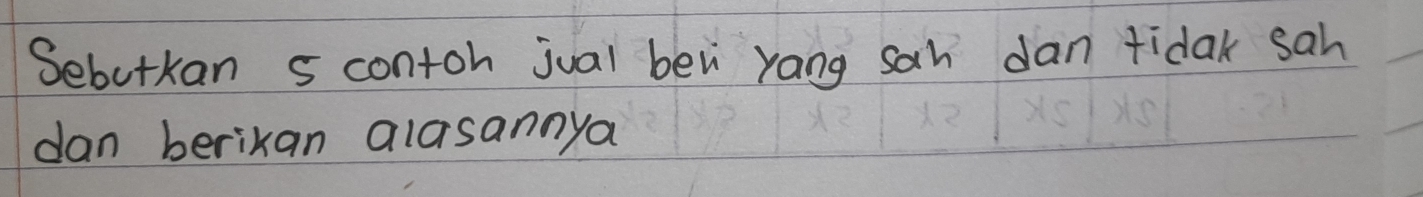 Sebutkan 5 contoh jual beli yang sah dan tidak sah
dan berikan alasannya